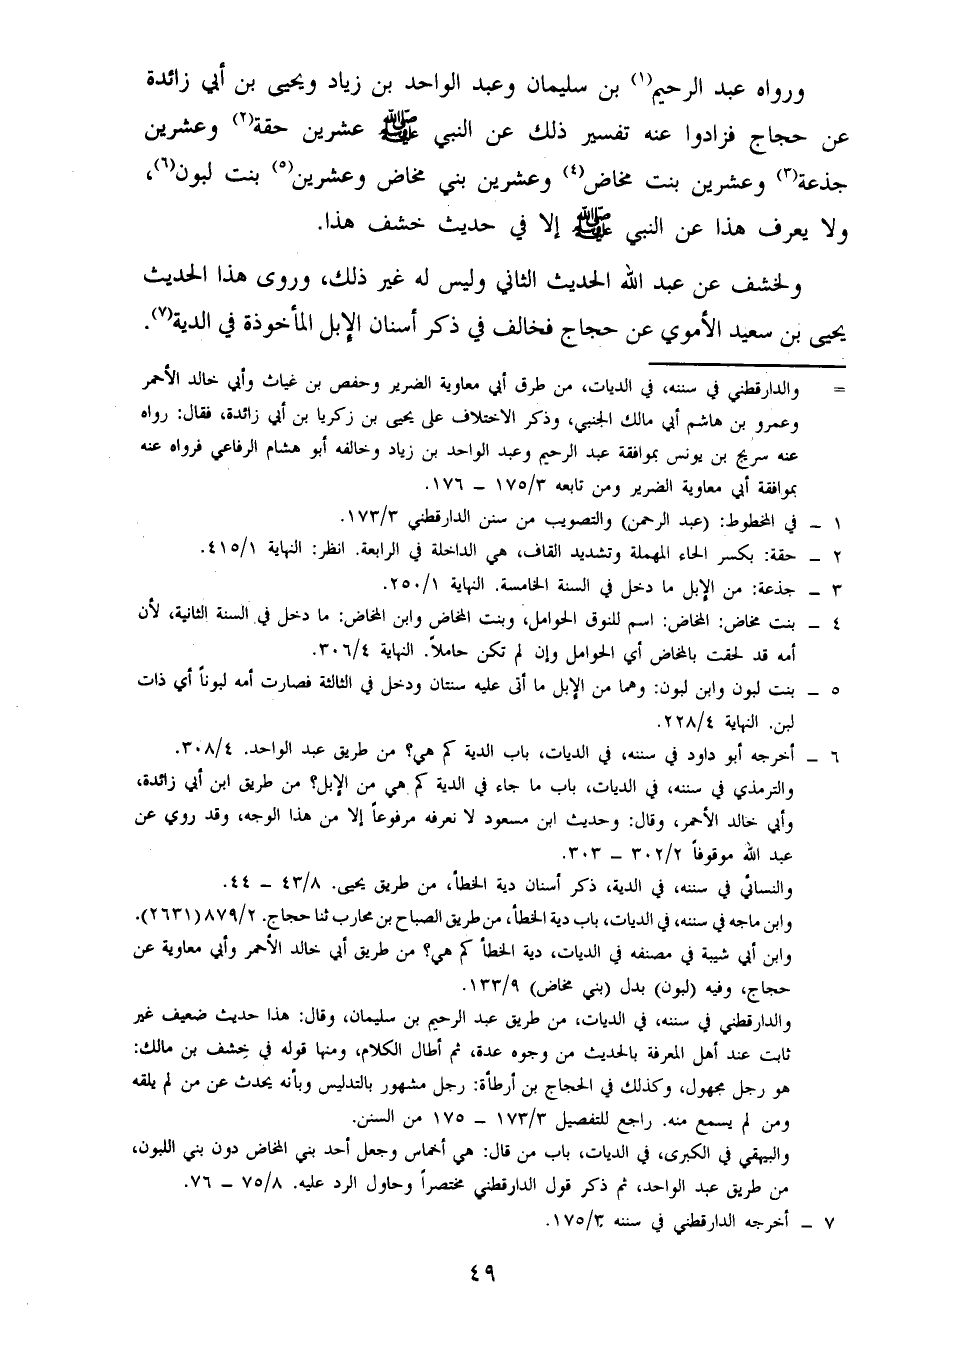 ورواه عبد الرحيم(١) بن سليمان وعبد الواحد بن زياد ويحيى بن أبي زائدة
عن حجاج فزادوا عنه تفسير ذلك عن النبي ﷺ عشرين حقة(٢) وعشرين
جذعة(٣) وعشرين بنت مخاض(٤) وعشرين بني مخاض وعشرين(٥) بنت لبون(٦)،
ولا يعرف هذا عن النبي ﷺ إلا في حديث خشف هذا.
ولخشف عن عبد الله الحديث الثاني وليس له غير ذلك، وروى هذا الحديث
يحيى بن سعيد الأموي عن حجاج فخالف في ذكر أسنان الإبل المأخوذة في الدية(٧).
= والدارقطني في سننه، في الديات، من طرق أبي معاوية الضرير وحفص بن غياث وأبي خالد الأحمر
وعمرو بن هاشم أبي مالك الجنبي، وذكر الاختلاف على يحيى بن زكريا بن أبي زائدة، فقال: رواه
عنه سريج بن يونس بموافقة عبد الرحيم وعبد الواحد بن زياد وخالفه أبو هشام الرفاعي فرواه عنه
بموافقة أبي معاوية الضرير ومن تابعه ١٧٥/٣ - ١٧٦.
١ - في المخطوط: (عبد الرحمن) والتصويب من سنن الدارقطني ١٧٣/٣.
٢ - حقة: بكسر الحاء المهملة وتشديد القاف، هي الداخلة في الرابعة. انظر: النهاية ٤١٥/١.
٣ - جذعة: من الإبل ما دخل في السنة الخامسة. النهاية ٢٥٠/١.
٤ - بنت مخاض: المخاض: اسم للنوق الحوامل، وبنت المخاض وابن المخاض: ما دخل في السنة الثانية، لأن
أمه قد لحقت بالمخاض أي الحوامل وإن لم تكن حاملاً. النهاية ٣٠٦/٤.
٥ - بنت لبون وابن لبون: وهما من الإبل ما أتى عليه سنتان ودخل في الثالثة فصارت أمه لبوناً أي ذات
لبن. النهاية ٢٢٨/٤.
٦ - أخرجه أبو داود في سننه، في الديات، باب الدية كم هي؟ من طريق عبد الواحد. ٣٠٨/٤.
والترمذي في سننه، في الديات، باب ما جاء في الدية كم هي من الإبل؟ من طريق ابن أبي زائدة،
وأبي خالد الأحمر، وقال: وحديث ابن مسعود لا نعرفه مرفوعاً إلا من هذا الوجه، وقد روي عن
عبد الله موقوفاً ٣٠٢/٢ - ٣٠٣.
والنسائي في سننه، في الدية، ذكر أسنان دية الخطأ، من طريق يحيى. ٤٣/٨ - ٤٤.
وابن ماجه في سننه، في الديات، باب دية الخطأ، من طريق الصباح بن محارب ثنا حجاج. ٨٧٩/٢ (٢٦٣١).
وابن أبي شيبة في مصنفه في الديات، دية الخطأ كم هي؟ من طريق أبي خالد الأحمر وأبي معاوية عن
حجاج، وفيه (لبون) بدل (بني مخاض) ١٣٣/٩.
والدارقطني في سننه، في الديات، من طريق عبد الرحيم بن سليمان، وقال: هذا حديث ضعيف غير
ثابت عند أهل المعرفة بالحديث من وجوه عدة، ثم أطال الكلام، ومنها قوله في خِشف بن مالك:
هو رجل مجهول، وكذلك في الحجاج بن أرطأة: رجل مشهور بالتدليس وبأنه يحدث عن من لم يلقه
ومن لم يسمع منه. راجع للتفصيل ١٧٣/٣ - ١٧٥ من السنن.
والبيهقي في الكبرى، في الديات، باب من قال: هي أخماس وجعل أحد بني المخاض دون بني اللبون،
من طريق عبد الواحد، ثم ذكر قول الدارقطني مختصراً وحاول الرد عليه. ٧٥/٨ - ٧٦.
٧ - أخرجه الدارقطني في سننه ١٧٥/٣.
٤٩